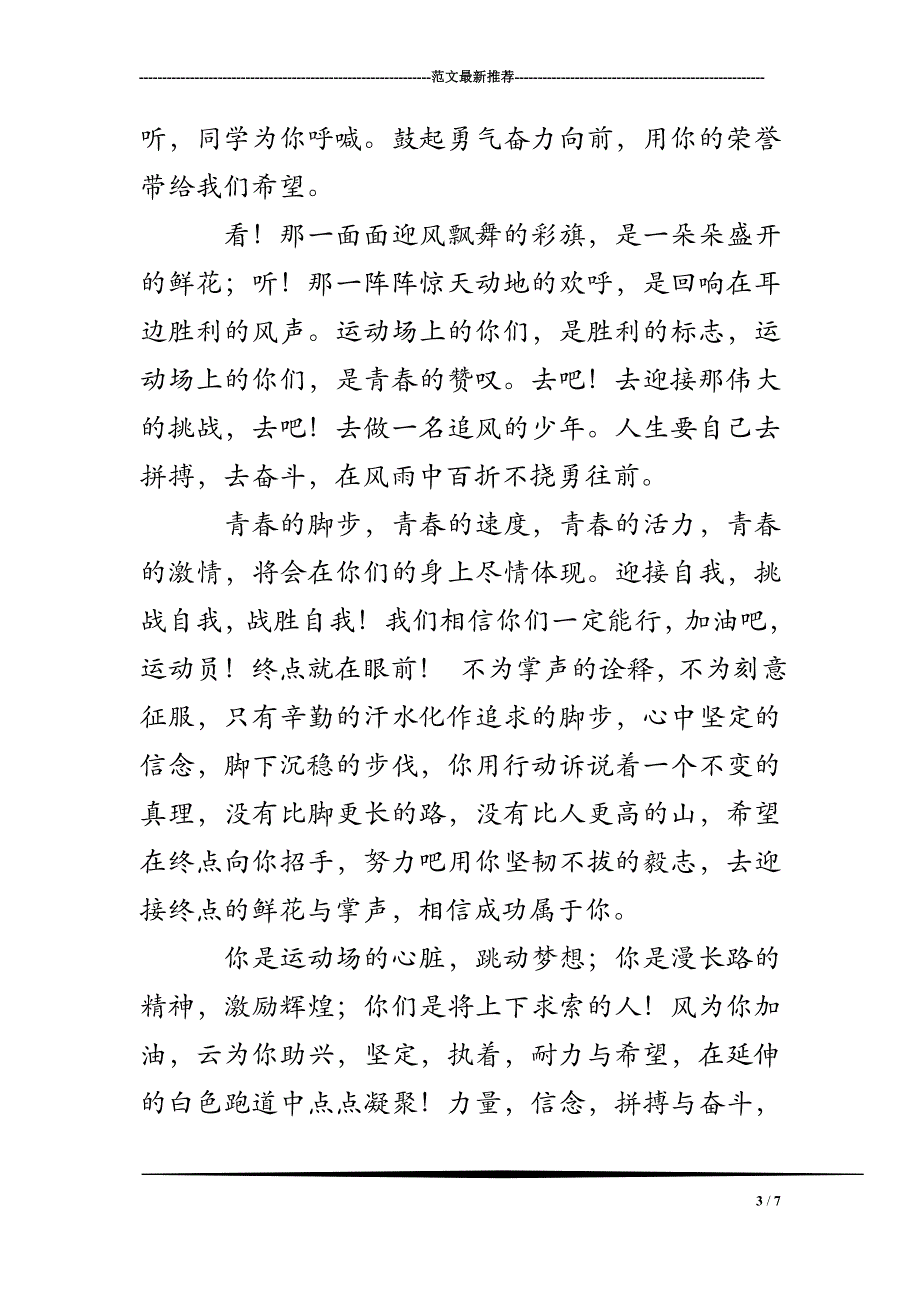 ---------------------------------------------------------------范文最新推荐------------------------------------------------------
听，同学为你呼喊。鼓起勇气奋力向前，用你的荣誉
带给我们希望。
看！那一面面迎风飘舞的彩旗，是一朵朵盛开
的鲜花；听！那一阵阵惊天动地的欢呼，是回响在耳
边胜利的风声。运动场上的你们，是胜利的标志，运
动场上的你们，是青春的赞叹。去吧！去迎接那伟大
的挑战，去吧！去做一名追风的少年。人生要自己去
拼搏，去奋斗，在风雨中百折不挠勇往前。
青春的脚步，青春的速度，青春的活力，青春
的激情，将会在你们的身上尽情体现。迎接自我，挑
战自我，战胜自我！我们相信你们一定能行，加油吧，
运动员！终点就在眼前！ 不为掌声的诠释，不为刻意
征服，只有辛勤的汗水化作追求的脚步，心中坚定的
信念，脚下沉稳的步伐，你用行动诉说着一个不变的
真理，没有比脚更长的路，没有比人更高的山，希望
在终点向你招手，努力吧用你坚韧不拔的毅志，去迎
接终点的鲜花与掌声，相信成功属于你。
你是运动场的心脏，跳动梦想；你是漫长路的
精神，激励辉煌；你们是将上下求索的人！风为你加
油，云为你助兴，坚定，执着，耐力与希望，在延伸
的白色跑道中点点凝聚！力量，信念，拼搏与奋斗，
3 / 7